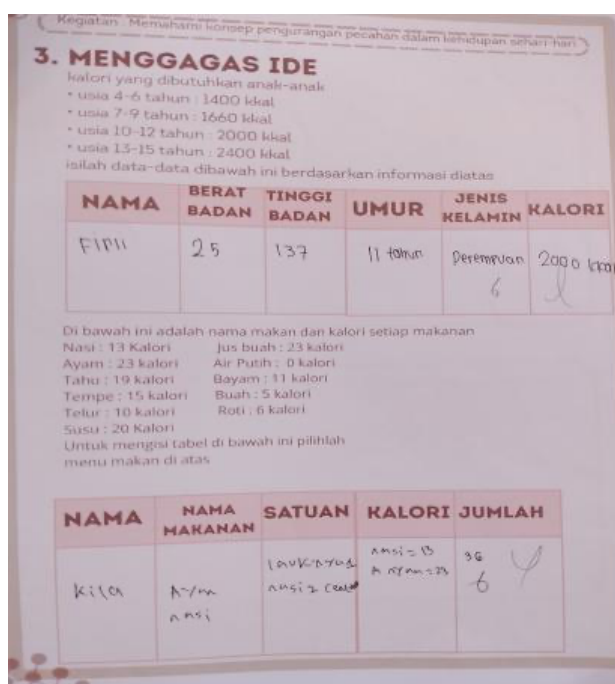 Kegiatan : Memahami konsep pengurangan pecahan dalam kehidupan sehari-hari
3. MENGGAGAS IDE
kalori yang dibutuhkan anak-anak
* usia 4-6 tahun : 1400 kkal
* usia 7-9 tahun : 1660 kkal
* usia 10-12 tahun : 2000 kkal
* usia 13-15 tahun : 2400 kkal
isilah data-data dibawah ini berdasarkan informasi diatas
NAMA BERAT BADAN TINGGI BADAN UMUR JENIS KELAMIN KALORI
25 137 11 tahun Perempuan 2000 kkal
6
Di bawah ini adalah nama makan dan kalori setiap makanan
Nasi : 13 Kalori Jus buah : 23 kalori
Ayam : 23 kalori Air Putih : 0 kalori
Tahu : 19 kalori Bayam : 11 kalori
Tempe : 15 kalori Buah : 5 kalori
Telur : 10 kalori Roti : 6 kalori
Susu : 20 Kalori
Untuk mengisi tabel di bawah ini pilihlah
menu makan di atas
NAMA NAMA MAKANAN SATUAN KALORI JUMLAH
nasi = 13 36
Kila Ayam nasi 2 Ayam = 23 6
nasi